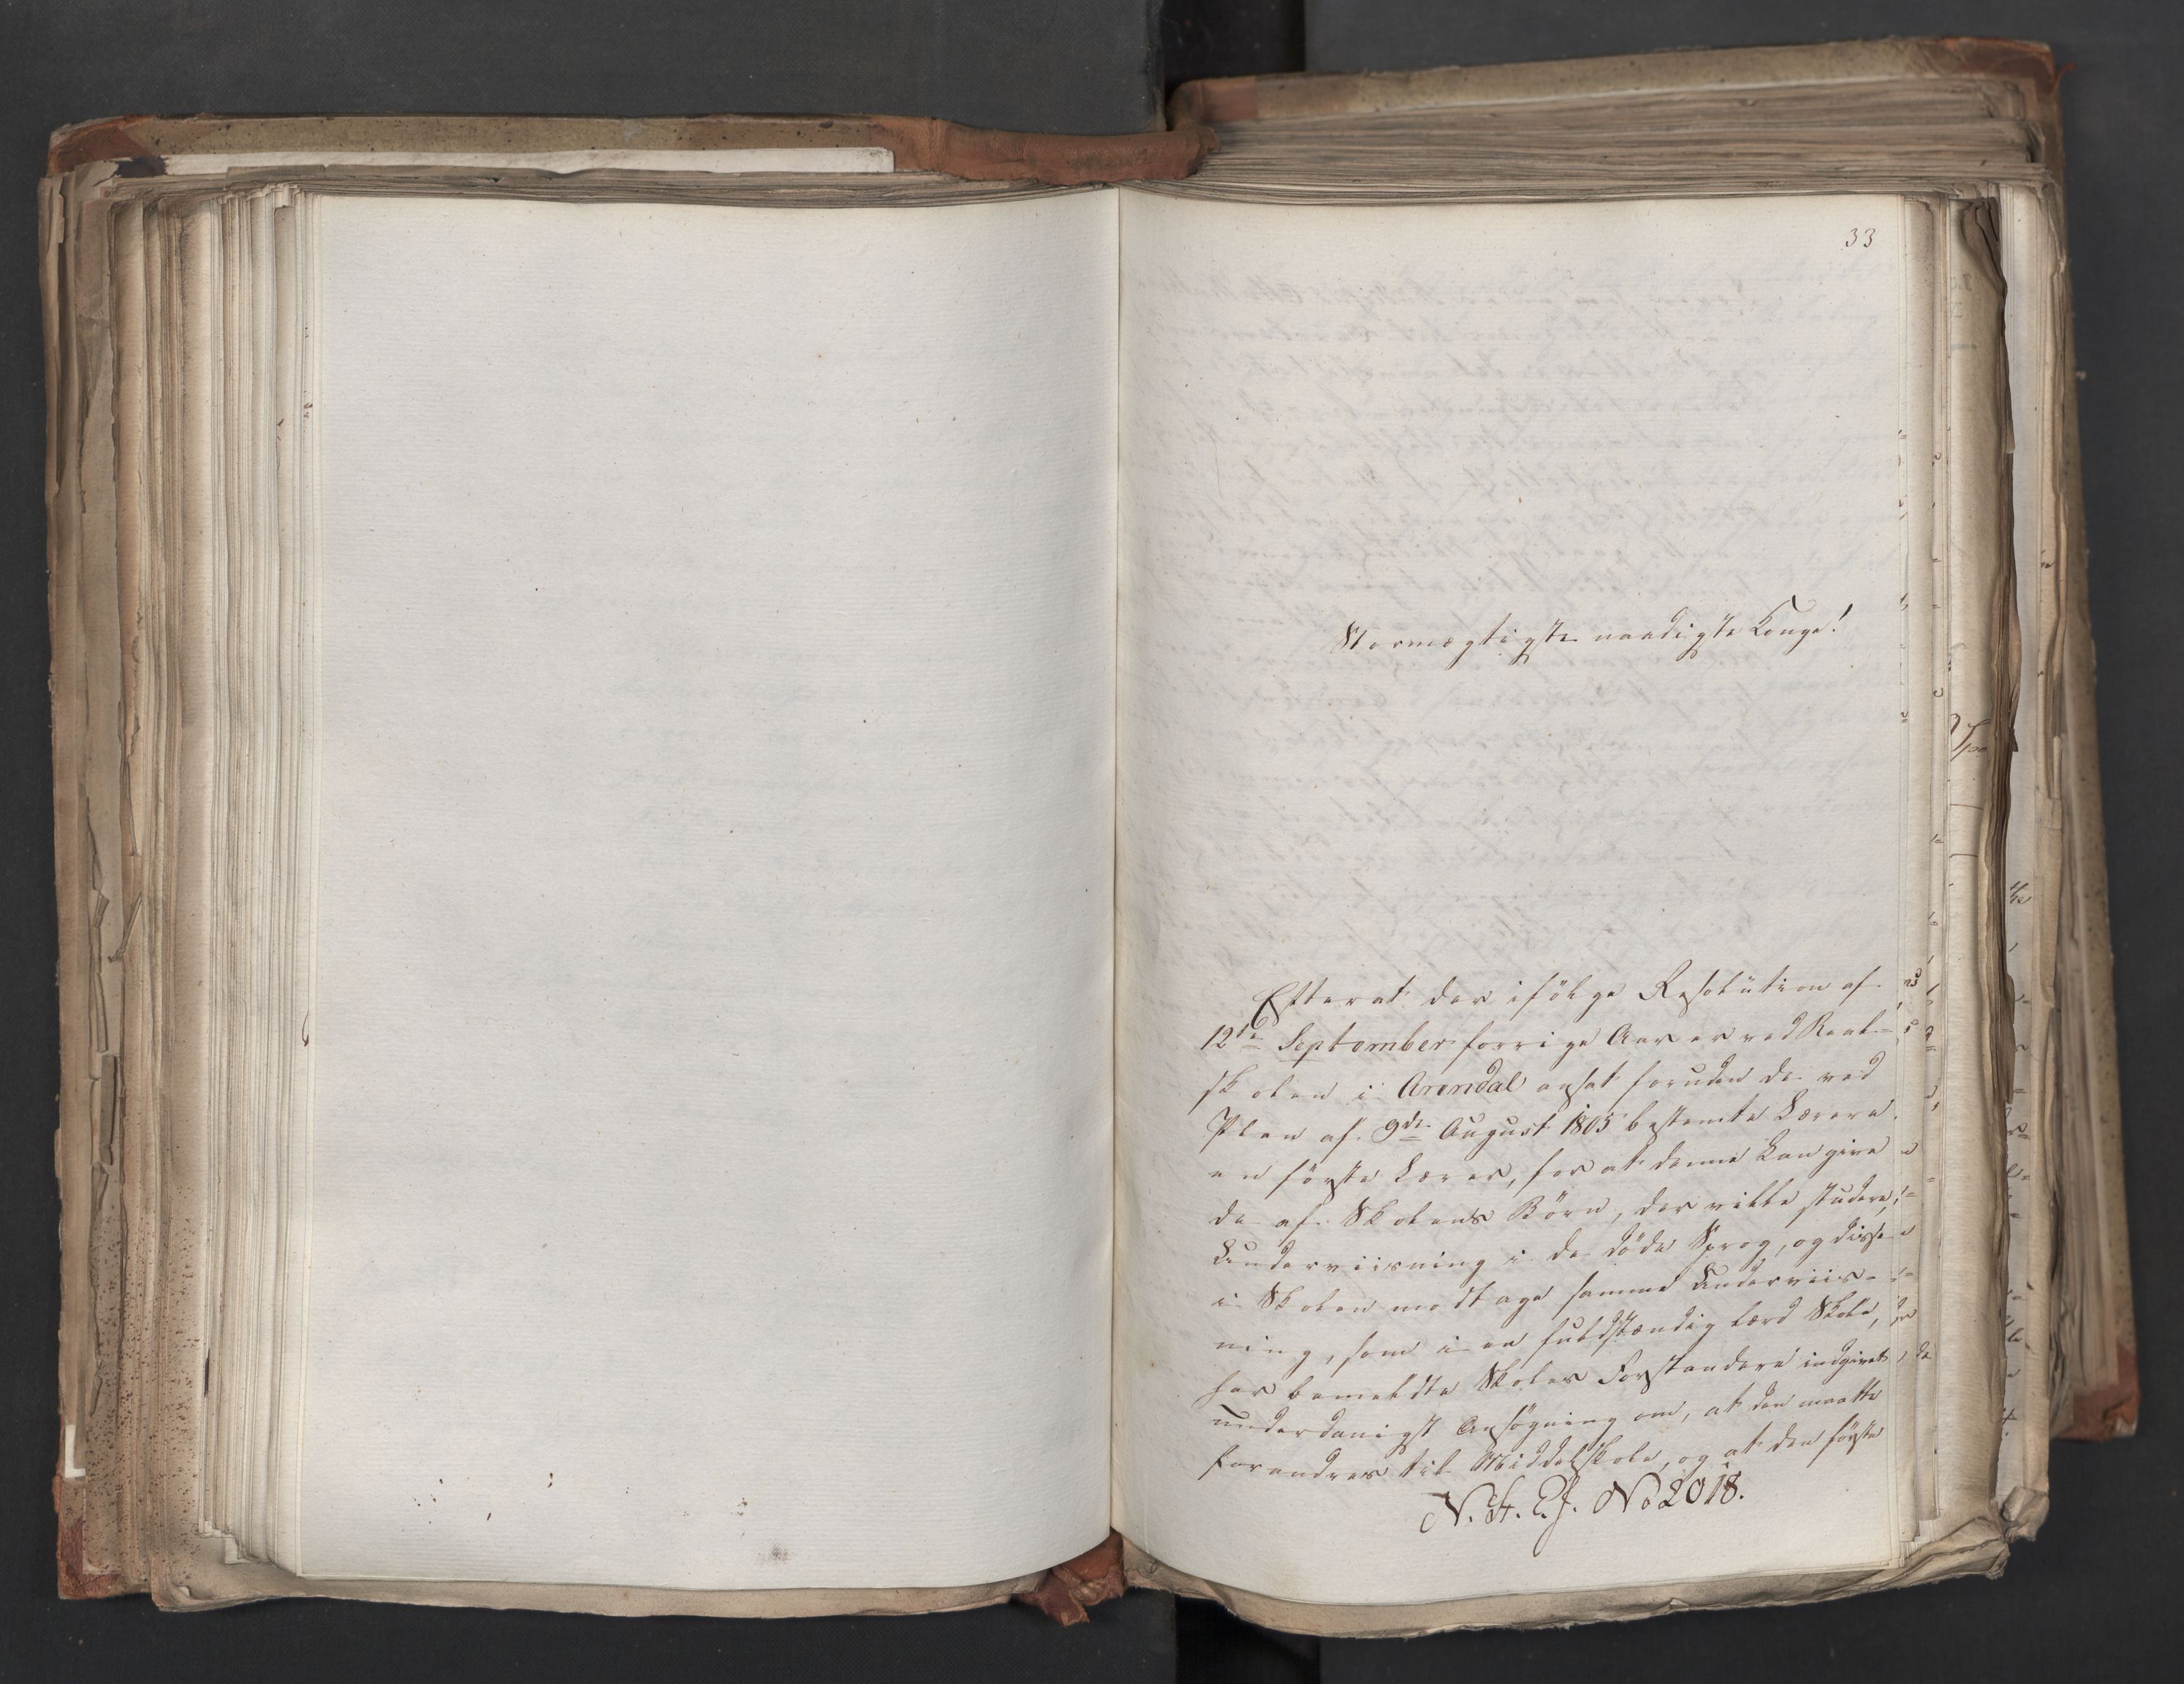 33
Stormægtigste naadigste Konge!
Efterat der ifölge Resolution af
12te September forrige Aar er ved Real-
skolen i Arendal ansat foruden de ved
Plan af 9de August 1805 bestemte Lærere
en förste Lærer, for at denne kan give
de af Skolens Börn, der ville studere,
Underviisning i de döde Sprog, og disse
i Skolen modtage samme Underviis-
ning, som i en fuldstændig lærd Skole,
har bemeldte Skoles Forstandere indgivet
underdanigst Ansögning om, at den maatte
forandres til Middelskole, og at den förste
N. St. E. J. No 2018.